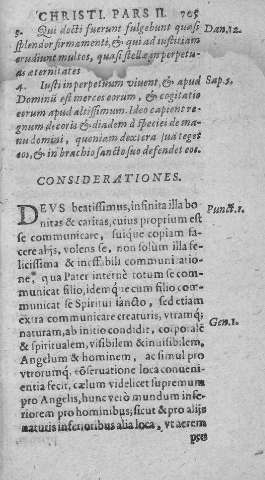 CHRISTI. PARS II. 705
3. Qui docti fuerint fulgebunt quasi Dan. 12.
splendor firmamenti, & qui ad iustitiam
erudiunt multos, quasi stellæ in perpetu-
as æternitates
4. Iusti in perpetuum viuent, & apud Sap. 5.
Dominũ est merces eorum, & cogitatio
eorum apud altissimum. Ideo accipient re-
gnum decoris & diadema speciei de ma-
nu domini, quoniam dextera sua teget
eos, & in brachio sancto suo defendet eos.
CONSIDERATIONES.
DEVS beatissimus, infinita illa bo- Punct. 1.
nitas & caritas, cuius proprium est
se communicare, suique copiam fa-
cere alijs, volens se, non solùm illa fe-
licissima & ineffabili communicatio-
ne, qua Pater internè totum se com-
municat filio, idemq́ue cum filio com-
municat se Spiritui sancto, sed etiam
extra communicare creaturis, vtramq́;
naturam, ab initio condidit, corpoialẽ Gen. 1.
& spiritualem, visibilem & inuisibilem,
Angelum & hominem, ac simul pro
vtrorumq́; cõseruatione loca conueni-
entia fecit, cælum videlicet supremum
pro Angelis, hunc verò mundum infe-
riorem pro hominibus; sicut & pro alijs
naturis inferioribus alia loca, vt aerem
pro